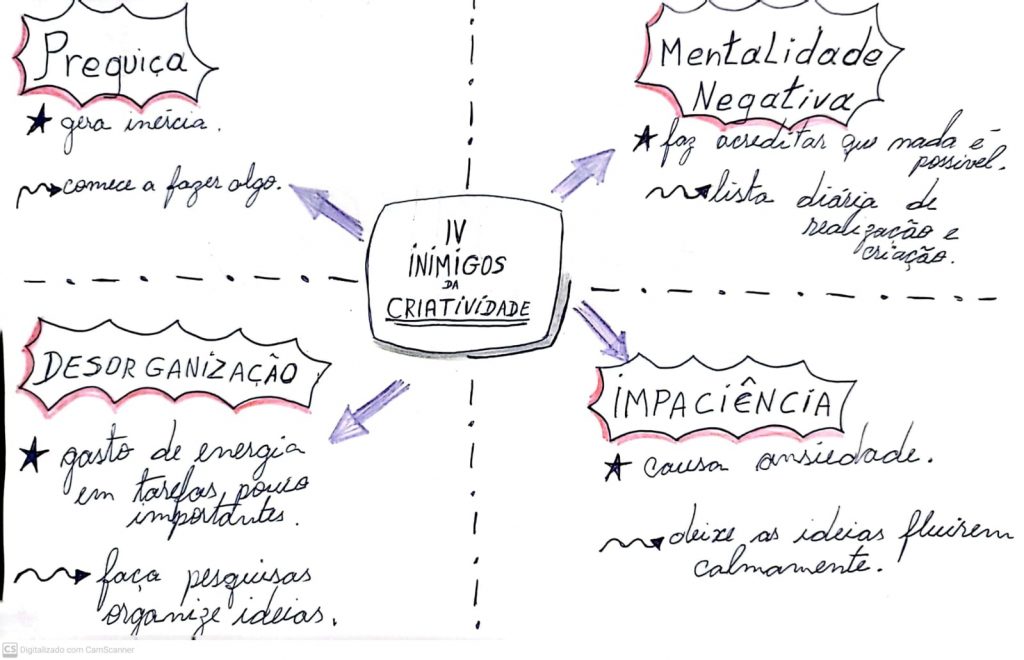 Preguiça
★ gera inércia.
comece a fazer algo.
Mentalidade
Negativa
★ faz acreditar que nada é
possível.
lista diária de
realização e
criação.
IV
INIMIGOS
DA
CRIATIVIDADE
DESORGANIZAÇÃO
★ gasto de energia
em tarefas pouco
importantes.
faça pesquisas
organize ideias.
IMPACIÊNCIA
★ causa ansiedade.
deixe as ideias fluirem
calmamente.
CS Digitalizado com CamScanner